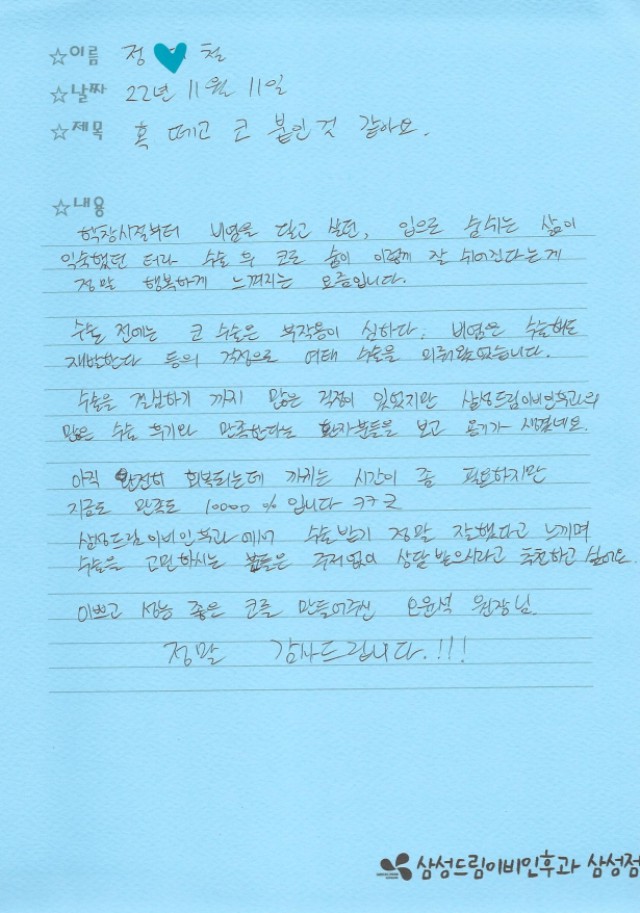 ☆이름 정 철
☆날짜 22년 11월 11일
☆제목 혹 떼고 코 붙인것 같아요.
☆내용
학창시절부터 비염을 달고 살던, 입으로 숨쉬는 삶이
익숙했던 터라 수술 후 코로 숨이 이렇게 잘 쉬어진다는게
정말 행복하게 느껴지는 요즘입니다.
수술 전에는 코 수술은 부작용이 심하다. 비염은 수술해도
재발한다 등의 걱정으로 여태 수술을 미뤄왔었습니다.
수술을 결심하기 까지 많은 걱정이 있었지만 삼성드림이비인후과의
많은 수술 후기와 만족한다는 환자분들을 보고 용기가 생겼네요.
아직 완전히 회복되는데 까지는 시간이 좀 필요하지만
지금도 만족도 10000 % 입니다 ㅋㅋㅋ
삼성드림이비인후과에서 수술받기 정말 잘했다고 느끼며
수술을 고민하시는 분들은 주저없이 상담 받으시라고 추천하고 싶어요.
이쁘고 성능 좋은 코를 만들어주신 오윤석 원장님.
정말 감사드립니다.!!!
삼성드림이비인후과 삼성점